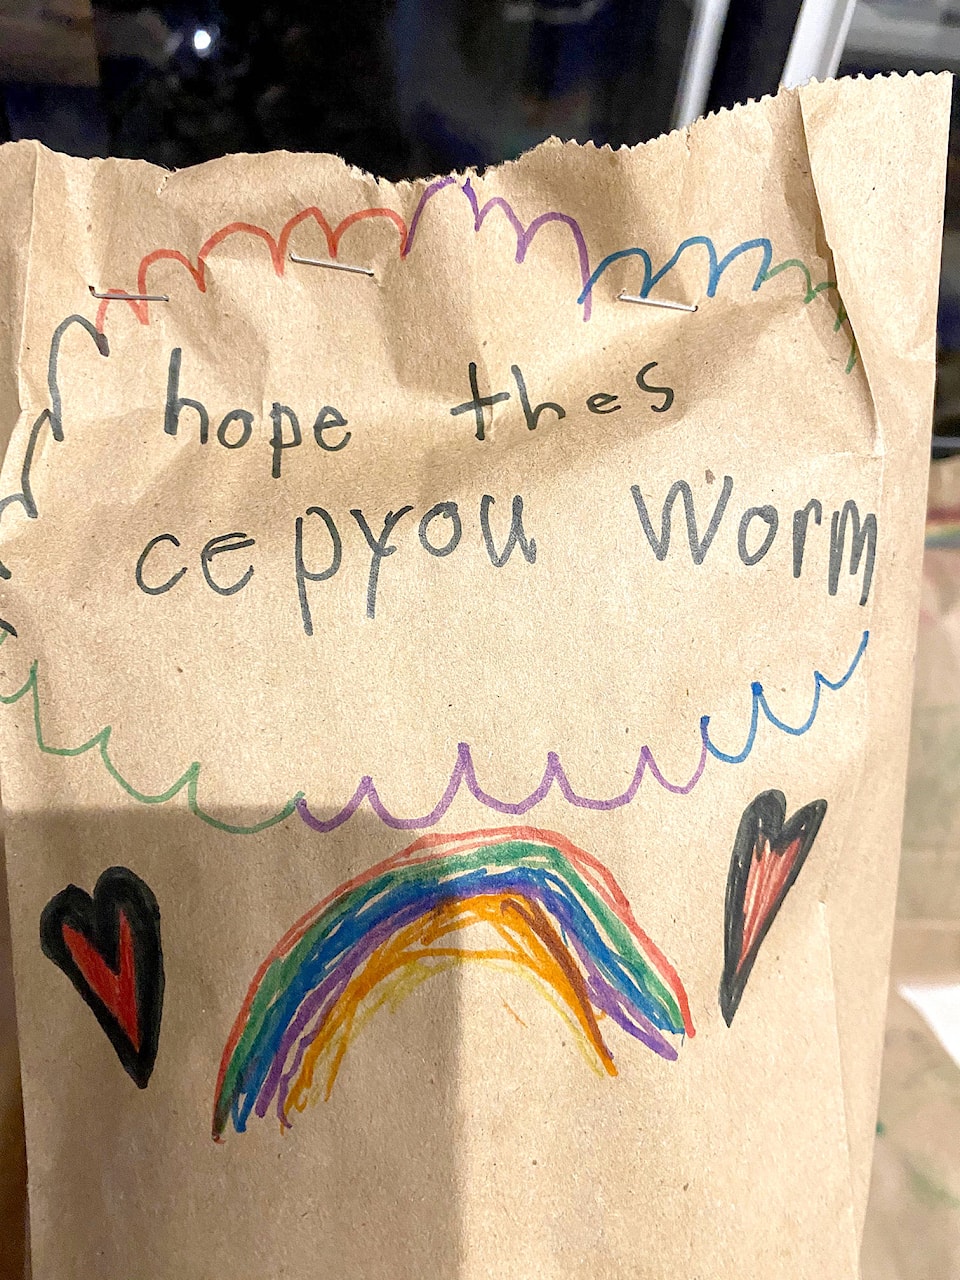 hope thes
cepyou Worm